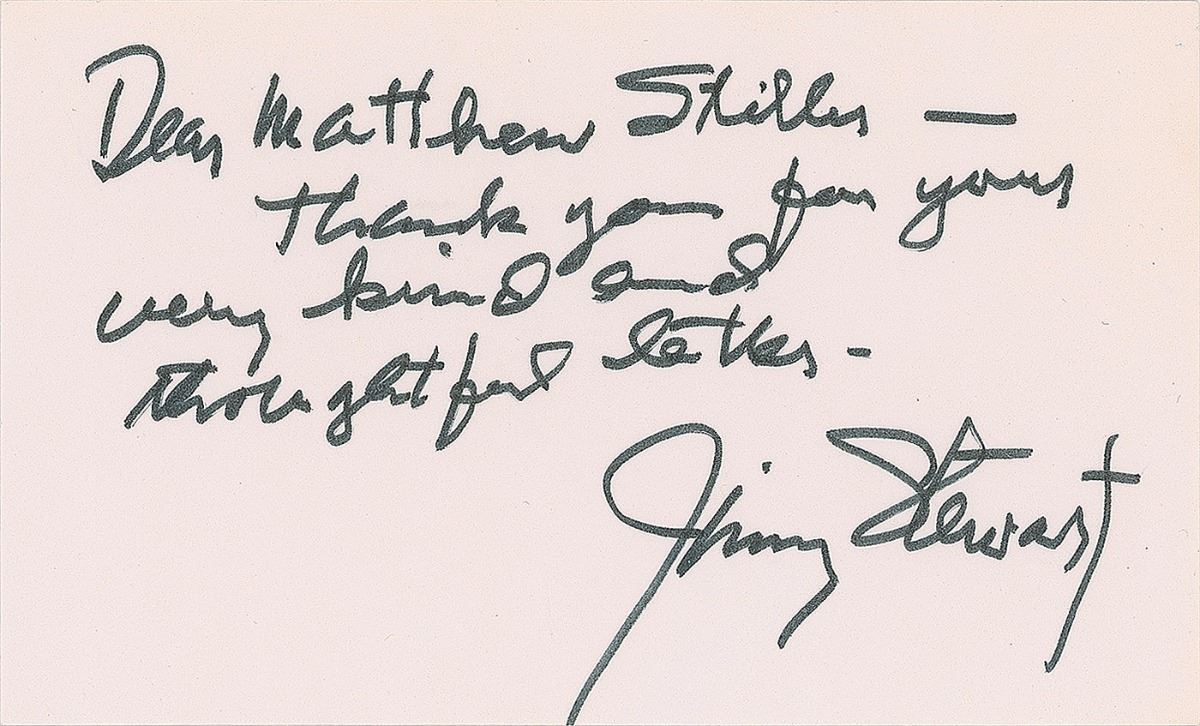 Dear Matthew Stiller —
thank you for your
very kind and
thoughtful letter -
Jimmy Stewart